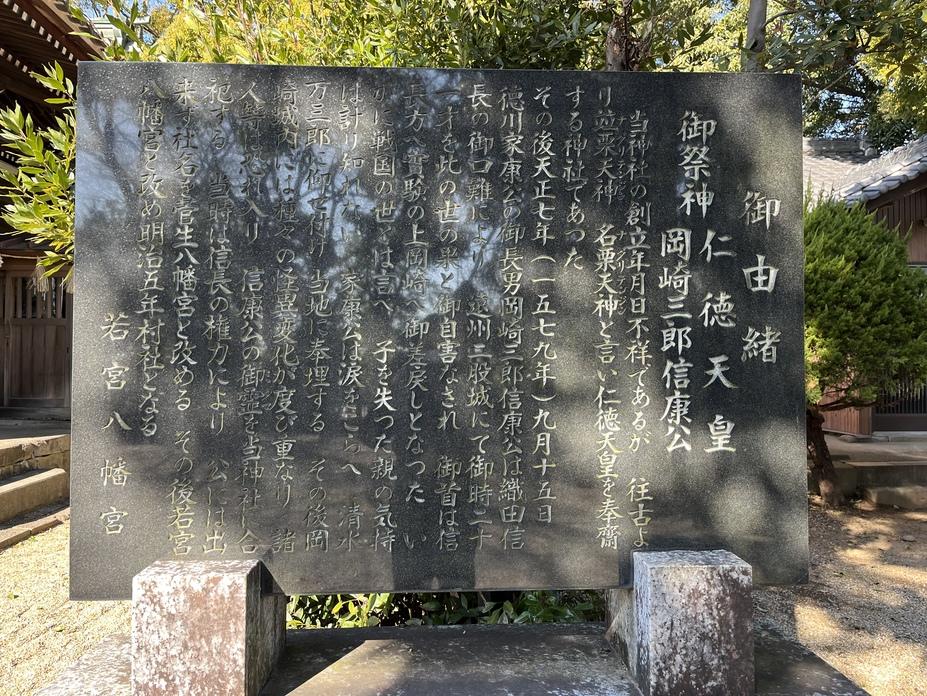 御由緒
御祭神 仁徳天皇
岡崎三郎信康公
当神社の創立年月日不祥であるが 往古よ
り並栗天神 名栗天神と言い仁徳天皇を奉齋
する神社であった
その後天正七年(一五七九年)九月十五日
徳川家康公の御長男岡崎三郎信康公は織田信
長の御口難により 遠州二股城にて御時二十
一才を此の世の
と御自害なされ 御首は信
長方へ實験の上岡崎へ御差戻しとなつた い
かに戦国の世とは言へ 子を失つた親の気持
は計り知れない 家康公は涙をこらへ 清水
万三郎に仰せ付け 当地に奉埋する その後岡
崎城内には種々の怪異変化が度び重なり 諸
人
恐れ入り 信康公の御霊を当神社に合
祀する 当時は信長の権力により 公には出
来ず社名を菅生八幡宮と改める その後若宮
八幡宮と改め明治五年村社となる
若宮八幡宮